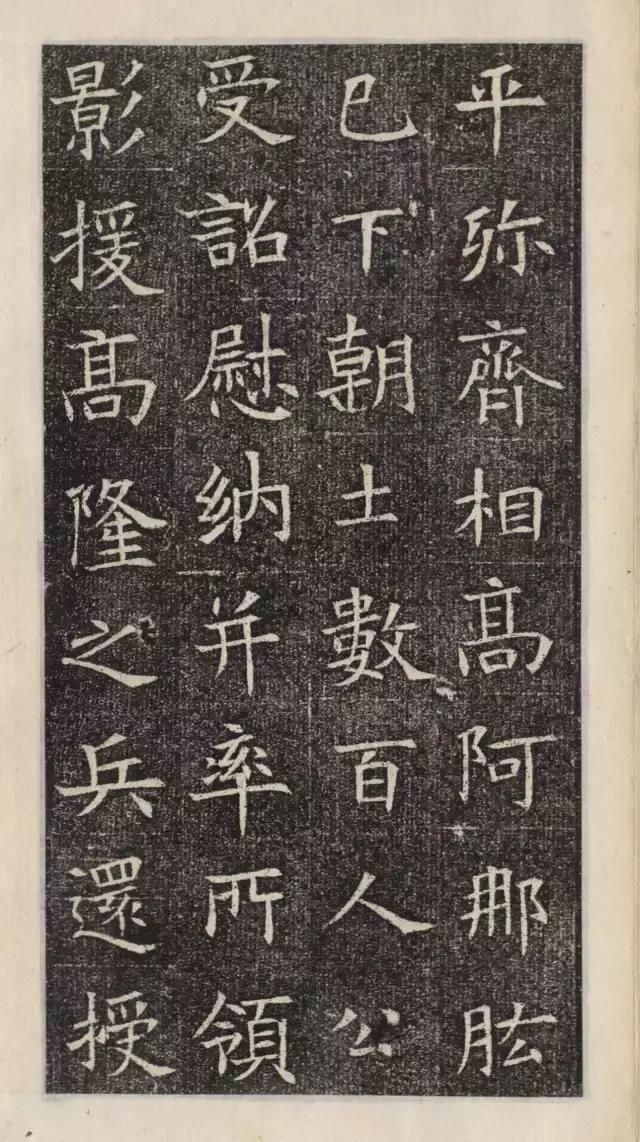 平弥齊相髙阿那肱
已下朝土數百人公
受詔慰纳并率所領
影援髙隆之兵還授